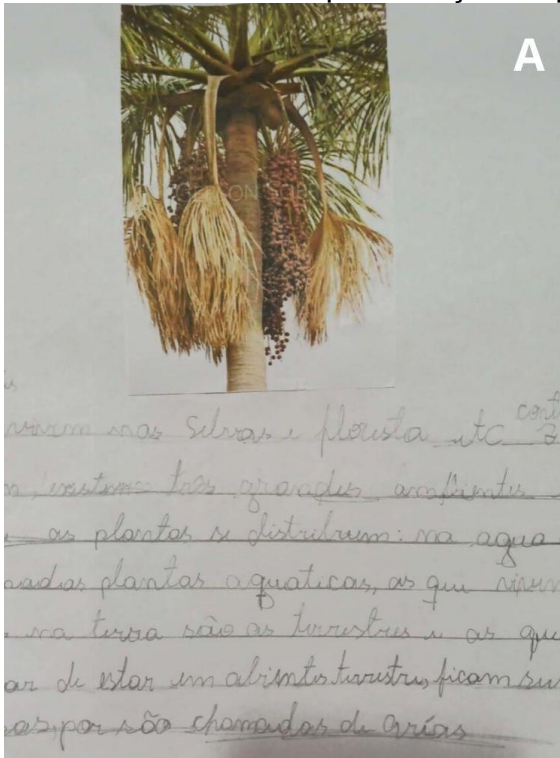 A
vivem nas Selvas e floresta etc
existem três grandes ambientes
as plantas se distribuem: na agua
plantas aquaticas, as que vivem
na terra são as terrestres e as que
ar de estar em abientes terrestre, ficam su
por são chamadas de aréias